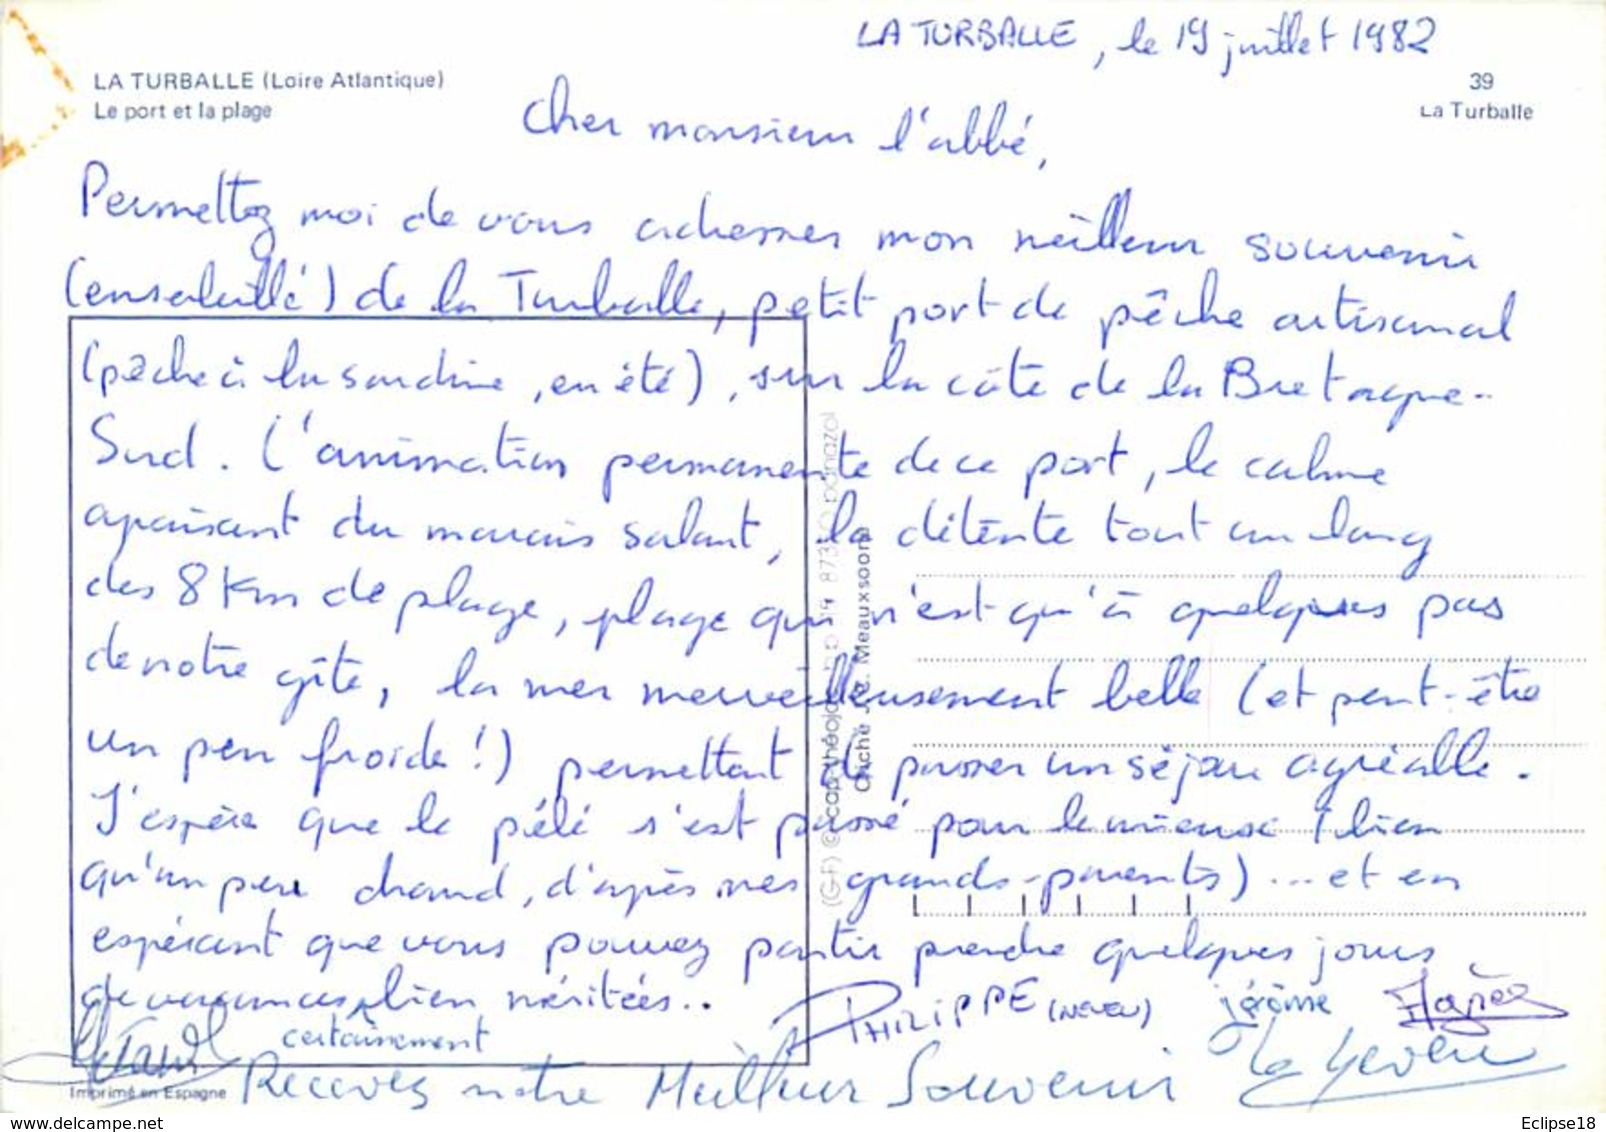 LA TURBALLE, le 19 juillet 1982
LA TURBALLE (Loire Atlantique)
Le port et la plage
39
La Turballe
Cher monsieur l'abbé,
Permettez moi de vous adresser mon meilleur souvenir
(ensoleillé) de la Turballe, petit port de pêche artisanal
(pêche à la sardine, en été), sur la côte de la Bretagne-
Sud. L'animation permanente de ce port, le calme
apaisant du marais salant, la détente tout au long
des 8 km de plage, plage qui n'est qu'à quelques pas
de notre gîte, la mer merveilleusement belle (et peut-être
un peu froide!) permettent de passer un séjour agréable.
J'espère que le pélé s'est passé pour le mieux (bien
qu'un peu chaud, d'après mes grands-parents)... et en
espérant que vous pouvez partir prendre quelques jours
de vacances, bien méritées..
certainement
PHILIPPE (NEVEU) jérôme Agnès
Recevez notre Meilleur Souvenir
Imprimé en Espagne
Cliché J.C. Meauxsoone
www.delcampe.net
Eclipse18